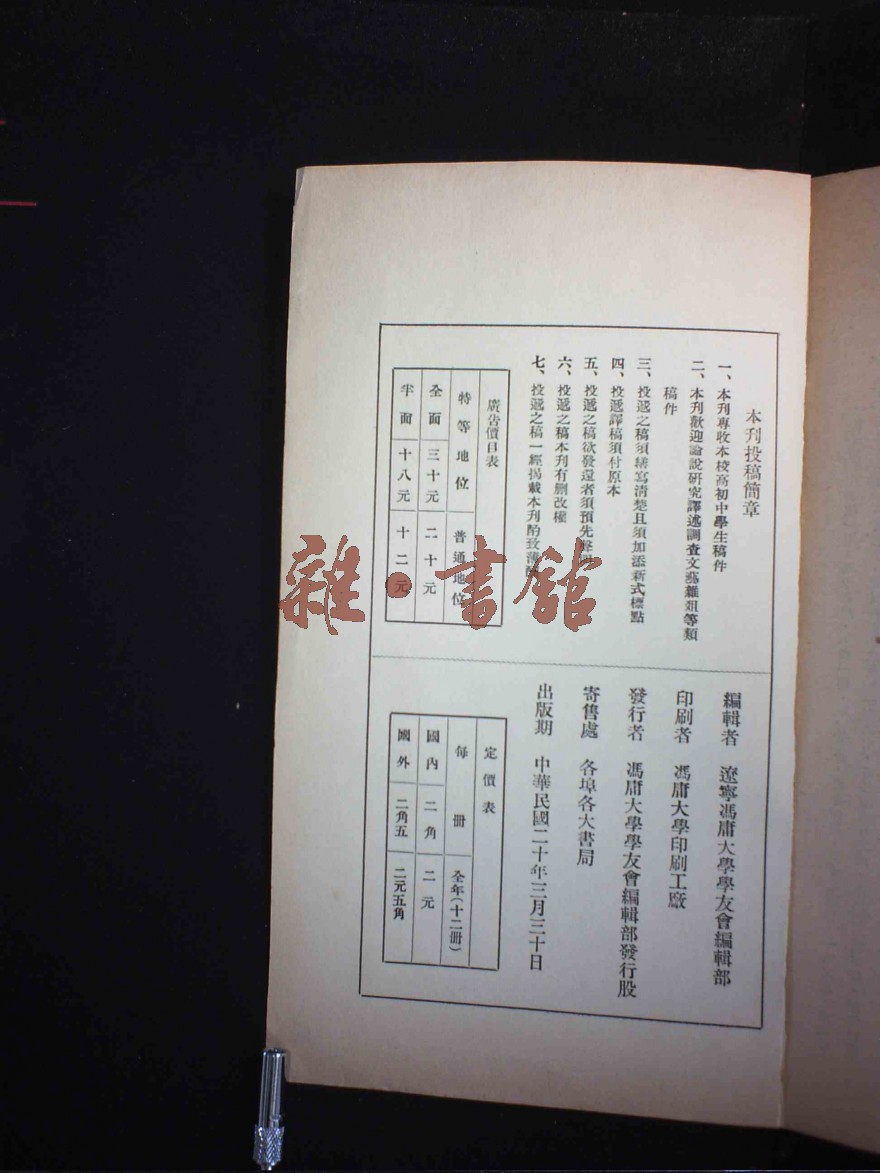 本刊投稿簡章
一、本刊專收本校高初中學生稿件
二、本刊歡迎論說研究譯述調查文藝雜俎等類
稿件
三、投遞之稿須繕寫清楚且須加添新式標點
四、投遞譯稿須付原本
五、投遞之稿欲發還者須預先聲明
六、投遞之稿本刊有删改權
七、投遞之稿一經揭載本刊酌致薄
廣告價目表
特等地位 普通地位
全面 三十元 二十元
半面 十八元 十二元
編輯者 遼寧馮庸大學學友會編輯部
印刷者 馮庸大學印刷工廠
發行者 馮庸大學學友會編輯部發行股
寄售處 各埠各大書局
出版期 中華民國二十年三月三十日
定價表
每冊 全年(十二冊)
國內 二角 二元
國外 二角五 二元五角
雜·書館